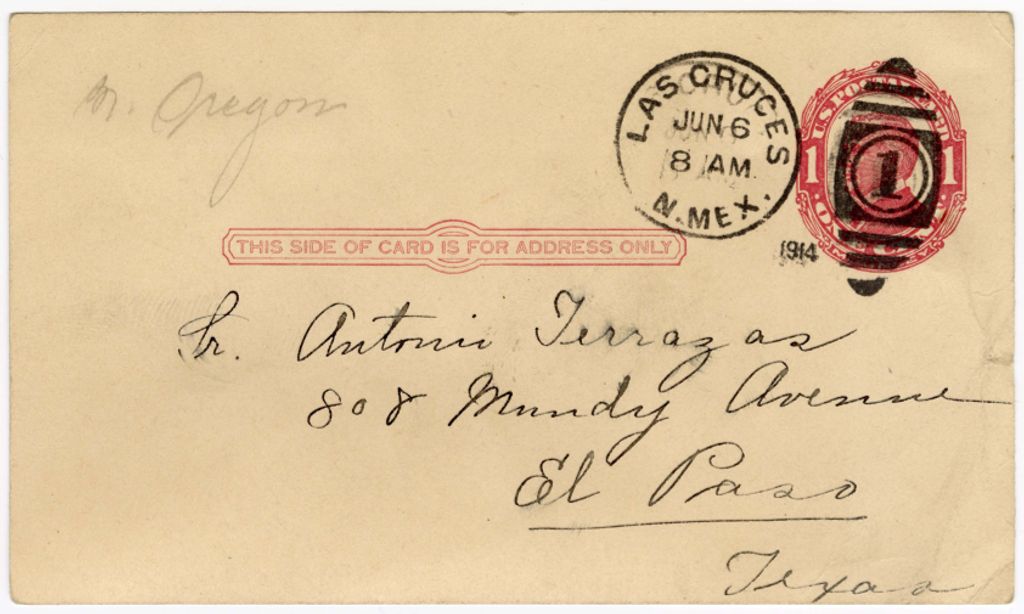 N. Oregon
LAS CRUCES
JUN 6
8 AM
N. MEX.
1914
U.S. POSTAL CARD
1 1
1
ONE CENT
THIS SIDE OF CARD IS FOR ADDRESS ONLY
Sr. Antonio Terrazas
808 Mundy Avenue
El Paso
Texas